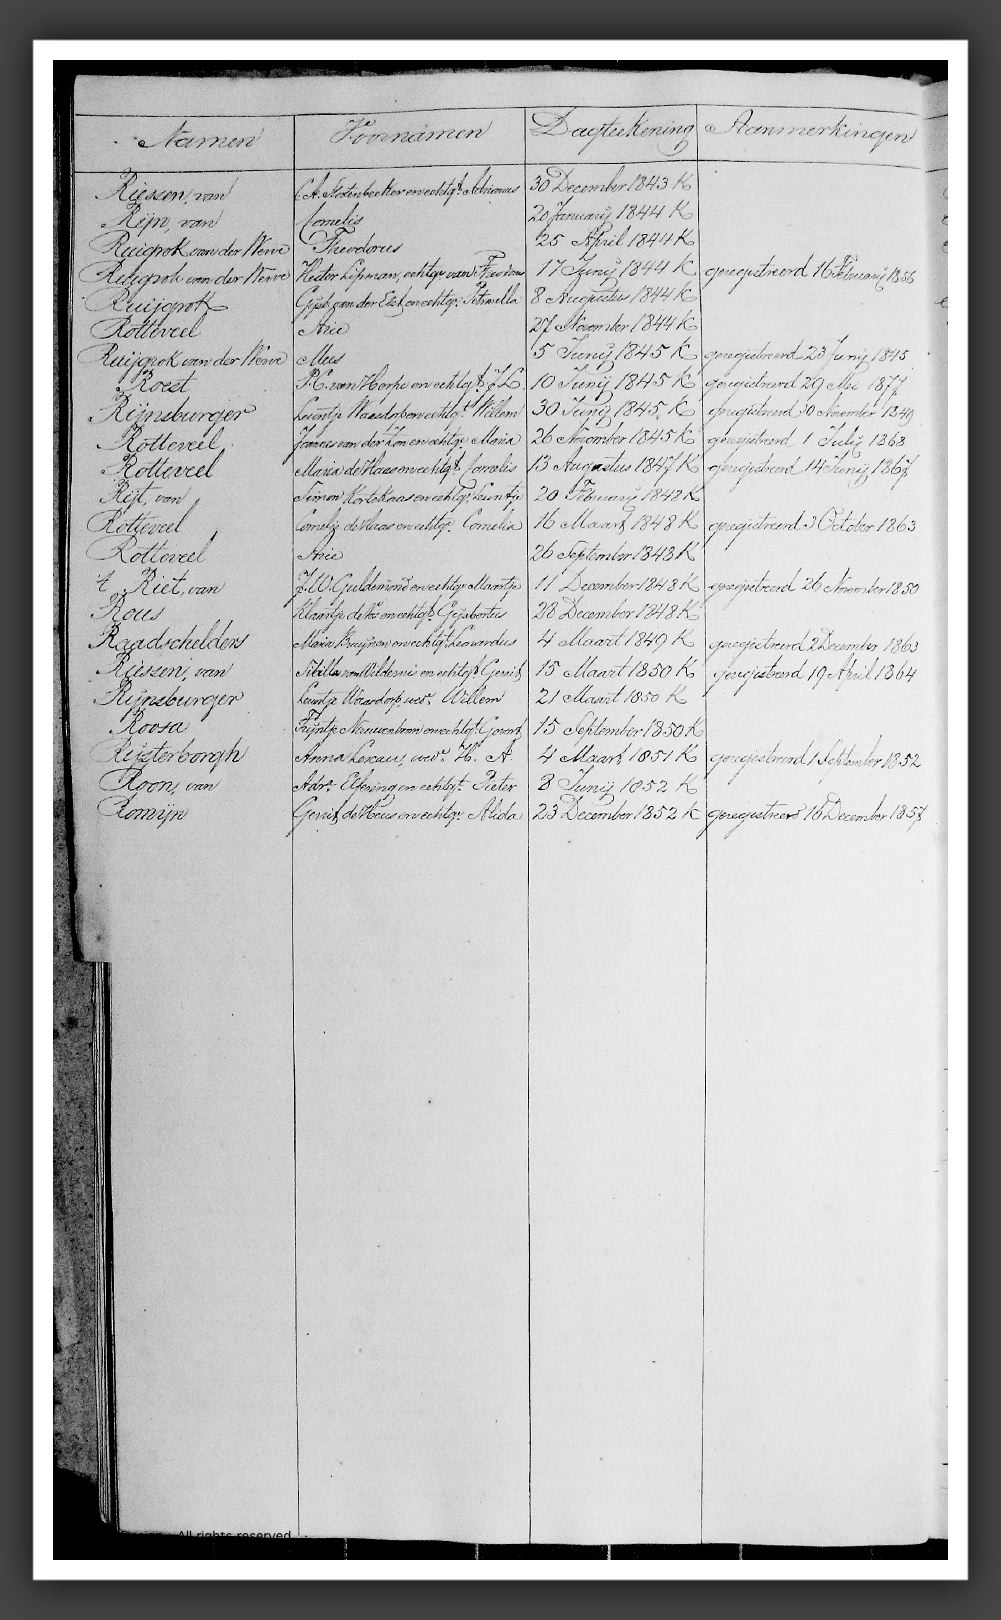 Namen Voornamen Dagteekening Aanmerkingen
Riessen, van C.A. Flotenbeeker en echtgt. Adrianus 30 December 1843 K
Rijn, van Cornelis 20 Januarij 1844 K
Ruigrok van der Werve Theodorus 25 April 1844 K
Ruigrok van der Werve Hester Lipman, echtgt. van Theodorus 17 Junij 1844 K geregistreerd 16 Februarij 1856
Ruijgrok Gijsb. van der Elst en echtgt. Petronella 8 Augustus 1844 K
Rotteveel Arie 27 November 1844 K
Ruijgrok van der Werve Mees 5 Junij 1845 K geregistreerd 23 Junij 1845
Roest P.C. van Horpe en echtgt. J.L. 10 Junij 1845 K geregistreerd 29 Mei 1877
Rijnsburger Leuntje Waasdorp en echtgt. Willem 30 Junij 1845 K geregistreerd 30 November 1849
Rotteveel Jannes van der Zon en echtgt. Maria 26 November 1845 K geregistreerd 1 Julij 1868
Rotteveel Maria de Haas en echtgt. Cornelis 13 Augustus 1847 K geregistreerd 14 Junij 1867
Rijt, van Simon Kortekaas en echtgt. Leuntje 20 Februarij 1848 K
Rotteveel Cornelis de Haas en echtgt. Cornelia 16 Maart 1848 K geregistreerd 3 October 1863
Rotteveel Arie 26 September 1848 K
't Riet, van J.W. Guldemond en echtgt. Maartje 11 December 1848 K geregistreerd 26 November 1850
Rous Klaartje de Vos en echtgt. Gijsbertus 28 December 1848 K
Raadschelders Maria Kruijnen en echtgt. Leonardus 4 Maart 1849 K geregistreerd 2 December 1863
Riessen, van Sibilla van Wildernis en echtgt. Gerrit 15 Maart 1850 K geregistreerd 19 April 1864
Rijnsburger Leuntje Waasdorp, wed. Willem 21 Maart 1850 K
Roosa Fijntje Nieuwenbron en echtgt. Govert 15 September 1850 K
Reijsterborgh Anna Lexau, wed. H. A. 4 Maart 1851 K geregistreerd 1 September 1852
Roon, van Adrs. Elfering en echtgt. Pieter 8 Junij 1852 K
Romijn Gerrit de Heus en echtgt. Alida 23 December 1852 K geregistreerd 16 December 1857
All rights reserved